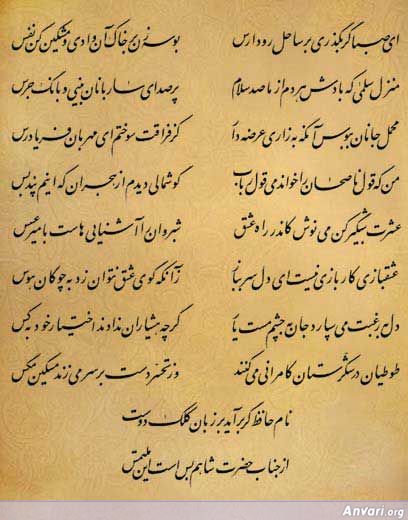 ای صبا گر بگذری بر ساحل رود ارس بوسه زن بر خاک آن وادی و مشکین کن نفس
منزل سلمی که بادش هر دم از ما صد سلام پر صدای ساربانان بینی و بانگ جرس
محمل جانان ببوس آنگه به زاری عرضه دار کز فراقت سوختم ای مهربان فریاد رس
من که قول ناصحان را خواندمی قول رباب گوشمالی دیدم از هجران که اینم پند بس
عشرت شبگیر کن می نوش کاندر راه عشق شبروان را آشنایی هاست با میر عسس
عشقبازی کار بازی نیست ای دل سر بباز زآنکه گوی عشق نتوان زد به چوگان هوس
دل به رغبت می سپارد جان به چشم مست یار گرچه هشیاران ندادند اختیار خود به کس
طوطیان در شکرستان کامرانی می کنند وز تحسر دست بر سر می زند مسکین مگس
نام حافظ گر برآید بر زبان کلک دوست
از جناب حضرت شاهم بس است این ملتمس
Anvari.org